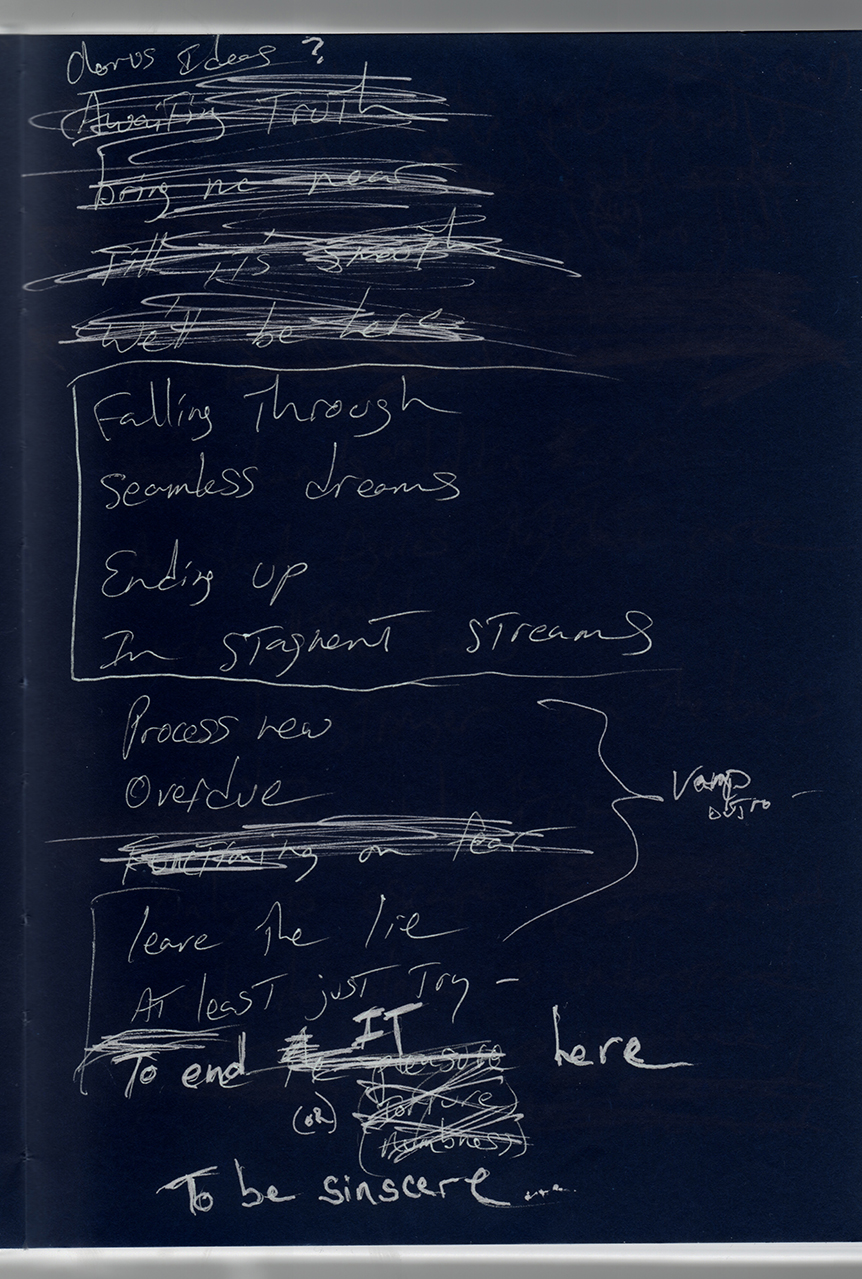 chorus Ideas?
Awaiting Truth
bring me near
Till it's
We'll be here
Falling Through
seamless dreams
Ending up
In stagnent streams
Process new
Overdue
Vamp
outro -
Functioning on fear
leave the lie
At least just Try -
IT
To end the pleasure here
(or) torture
numbness
To be sinscere....